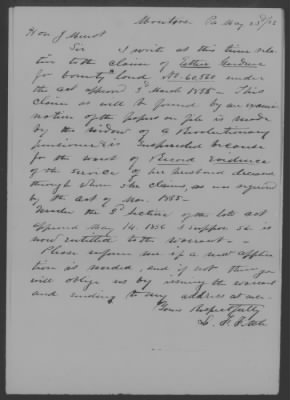 Montrose Pa May 23
Hon. J Minot
Sir I write at this time rela
tive to the claim of Esther
for bounty land No 60,560 under
the act approved 3d March 1855 - This
claim as will be found by an exami
nation of the papers on file is made
by the widow of a Revolutionary
pensioner is suspended because
for the want of Record Evidence
of the service of her husband deceased
through whom she claims, as was required
by the act of Mar. 1855 -
Under the 3d Section of the late act
approved May 14. 1856 I suppose she is
now entitled to the warrant -
Please inform me if a new applica
tion is needed, and if not then you
will oblige us by issuing the warrant
and sending to my address at once
Yours Respectfully
L. F. Fitch